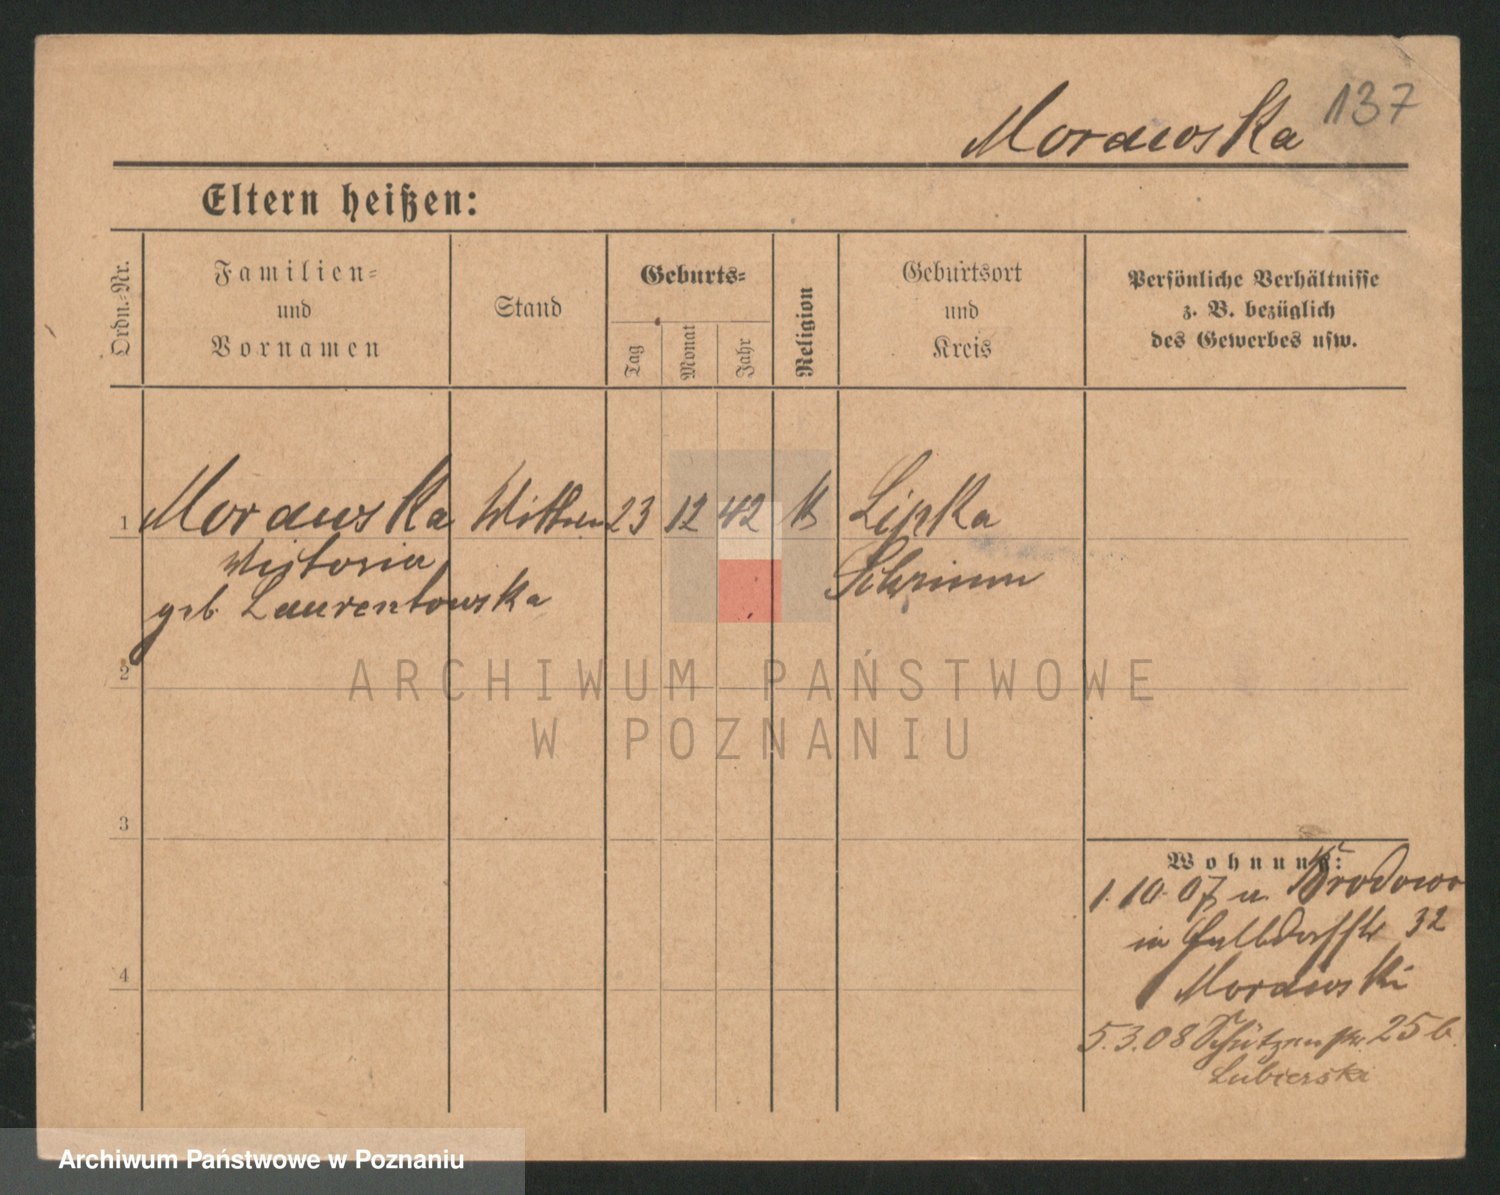 Morawska 137
Eltern heißen:
Ordn.-Nr.
Familien-
und
Vornamen
Stand
Geburts-
Tag
Monat
Jahr
Religion
Geburtsort
und
Kreis
Persönliche Verhältnisse
z. B. bezüglich
des Gewerbes usw.
1 Morawska Wittwe 23 12 42 K Lipka
Victoria Schrimm
geb. Laurentowska
2
3
4
Wohnung:
1.10.07 a. Brodowo
in 32
Morawski
5.3.08 Schützenstr. 25 b.
Lubierski
ARCHIWUM PAŃSTWOWE
W POZNANIU
Archiwum Państwowe w Poznaniu